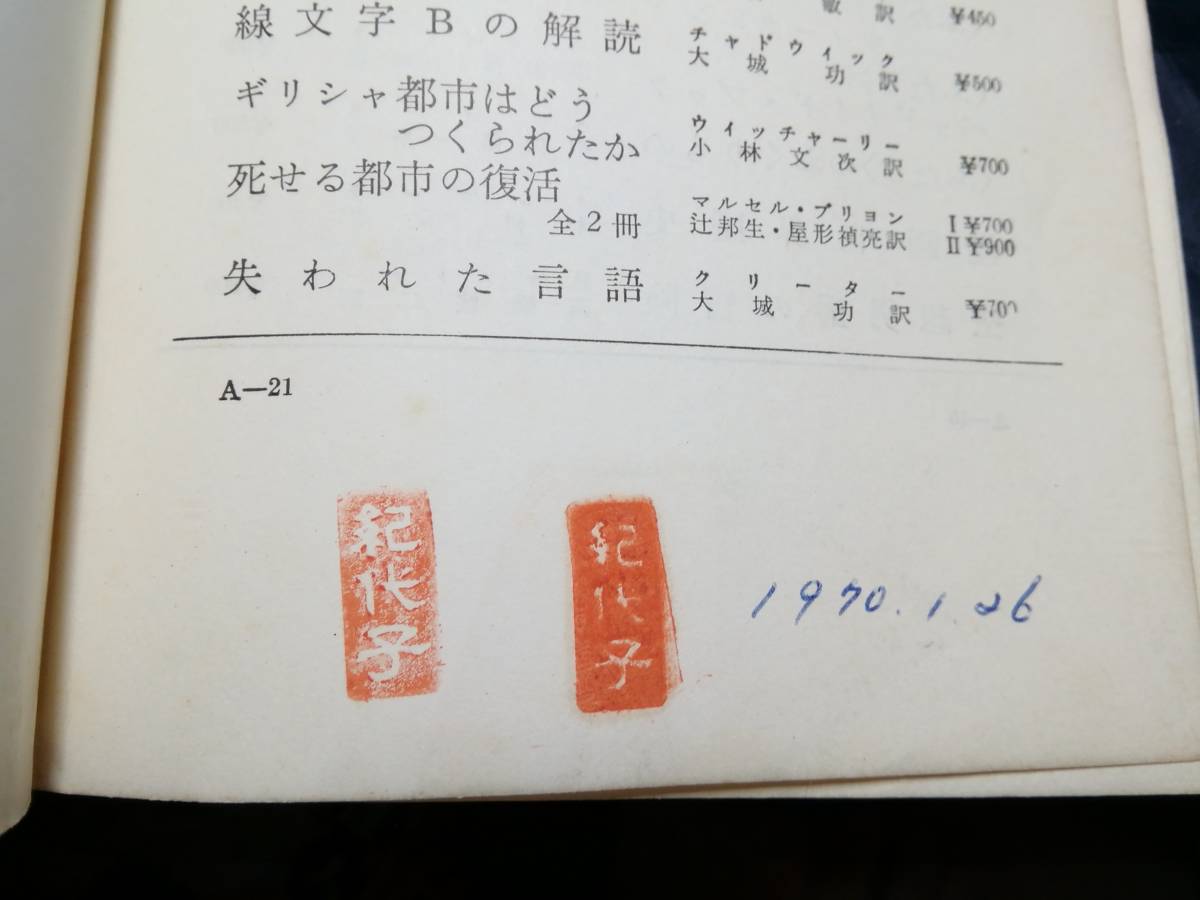 訳 ¥450
線文字Bの解読 チャドウィック
大城 功訳 ¥500
ギリシャ都市はどう
つくられたか ウィッチャーリー
小林文次訳 ¥700
死せる都市の復活
全2冊 マルセル・ブリヨン
辻邦生・屋形禎亮訳 I¥700
II¥900
失われた言語 クリーター
大城 功訳 ¥700
A—21
紀代子
紀代子
1970.1.26